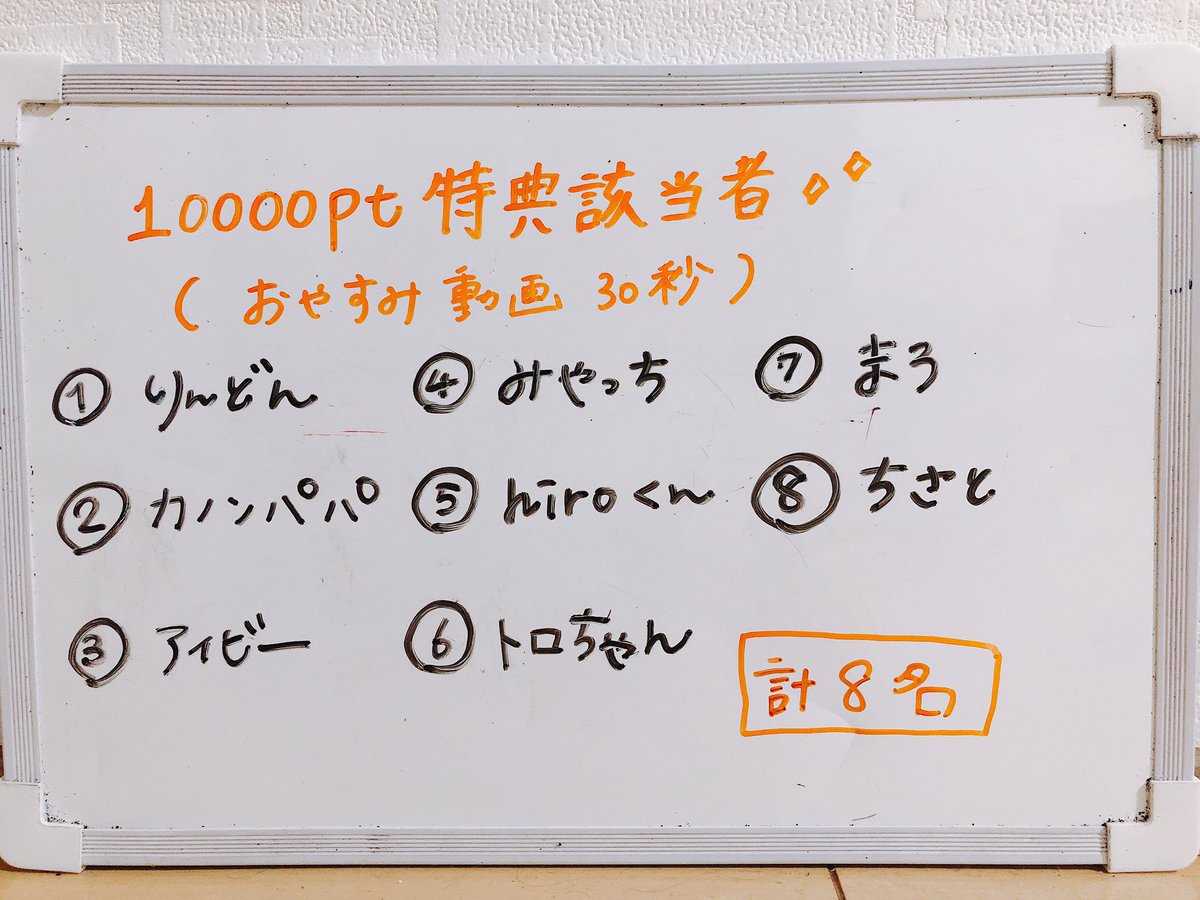 10000pt 特典該当者
( おやすみ 動画 30秒 )
① りんどん
② カノンパパ
③ アイビー
④ みやっち
⑤ hiroくん
⑥ トロちゃん
⑦ まろ
⑧ ちさと
計 8 名